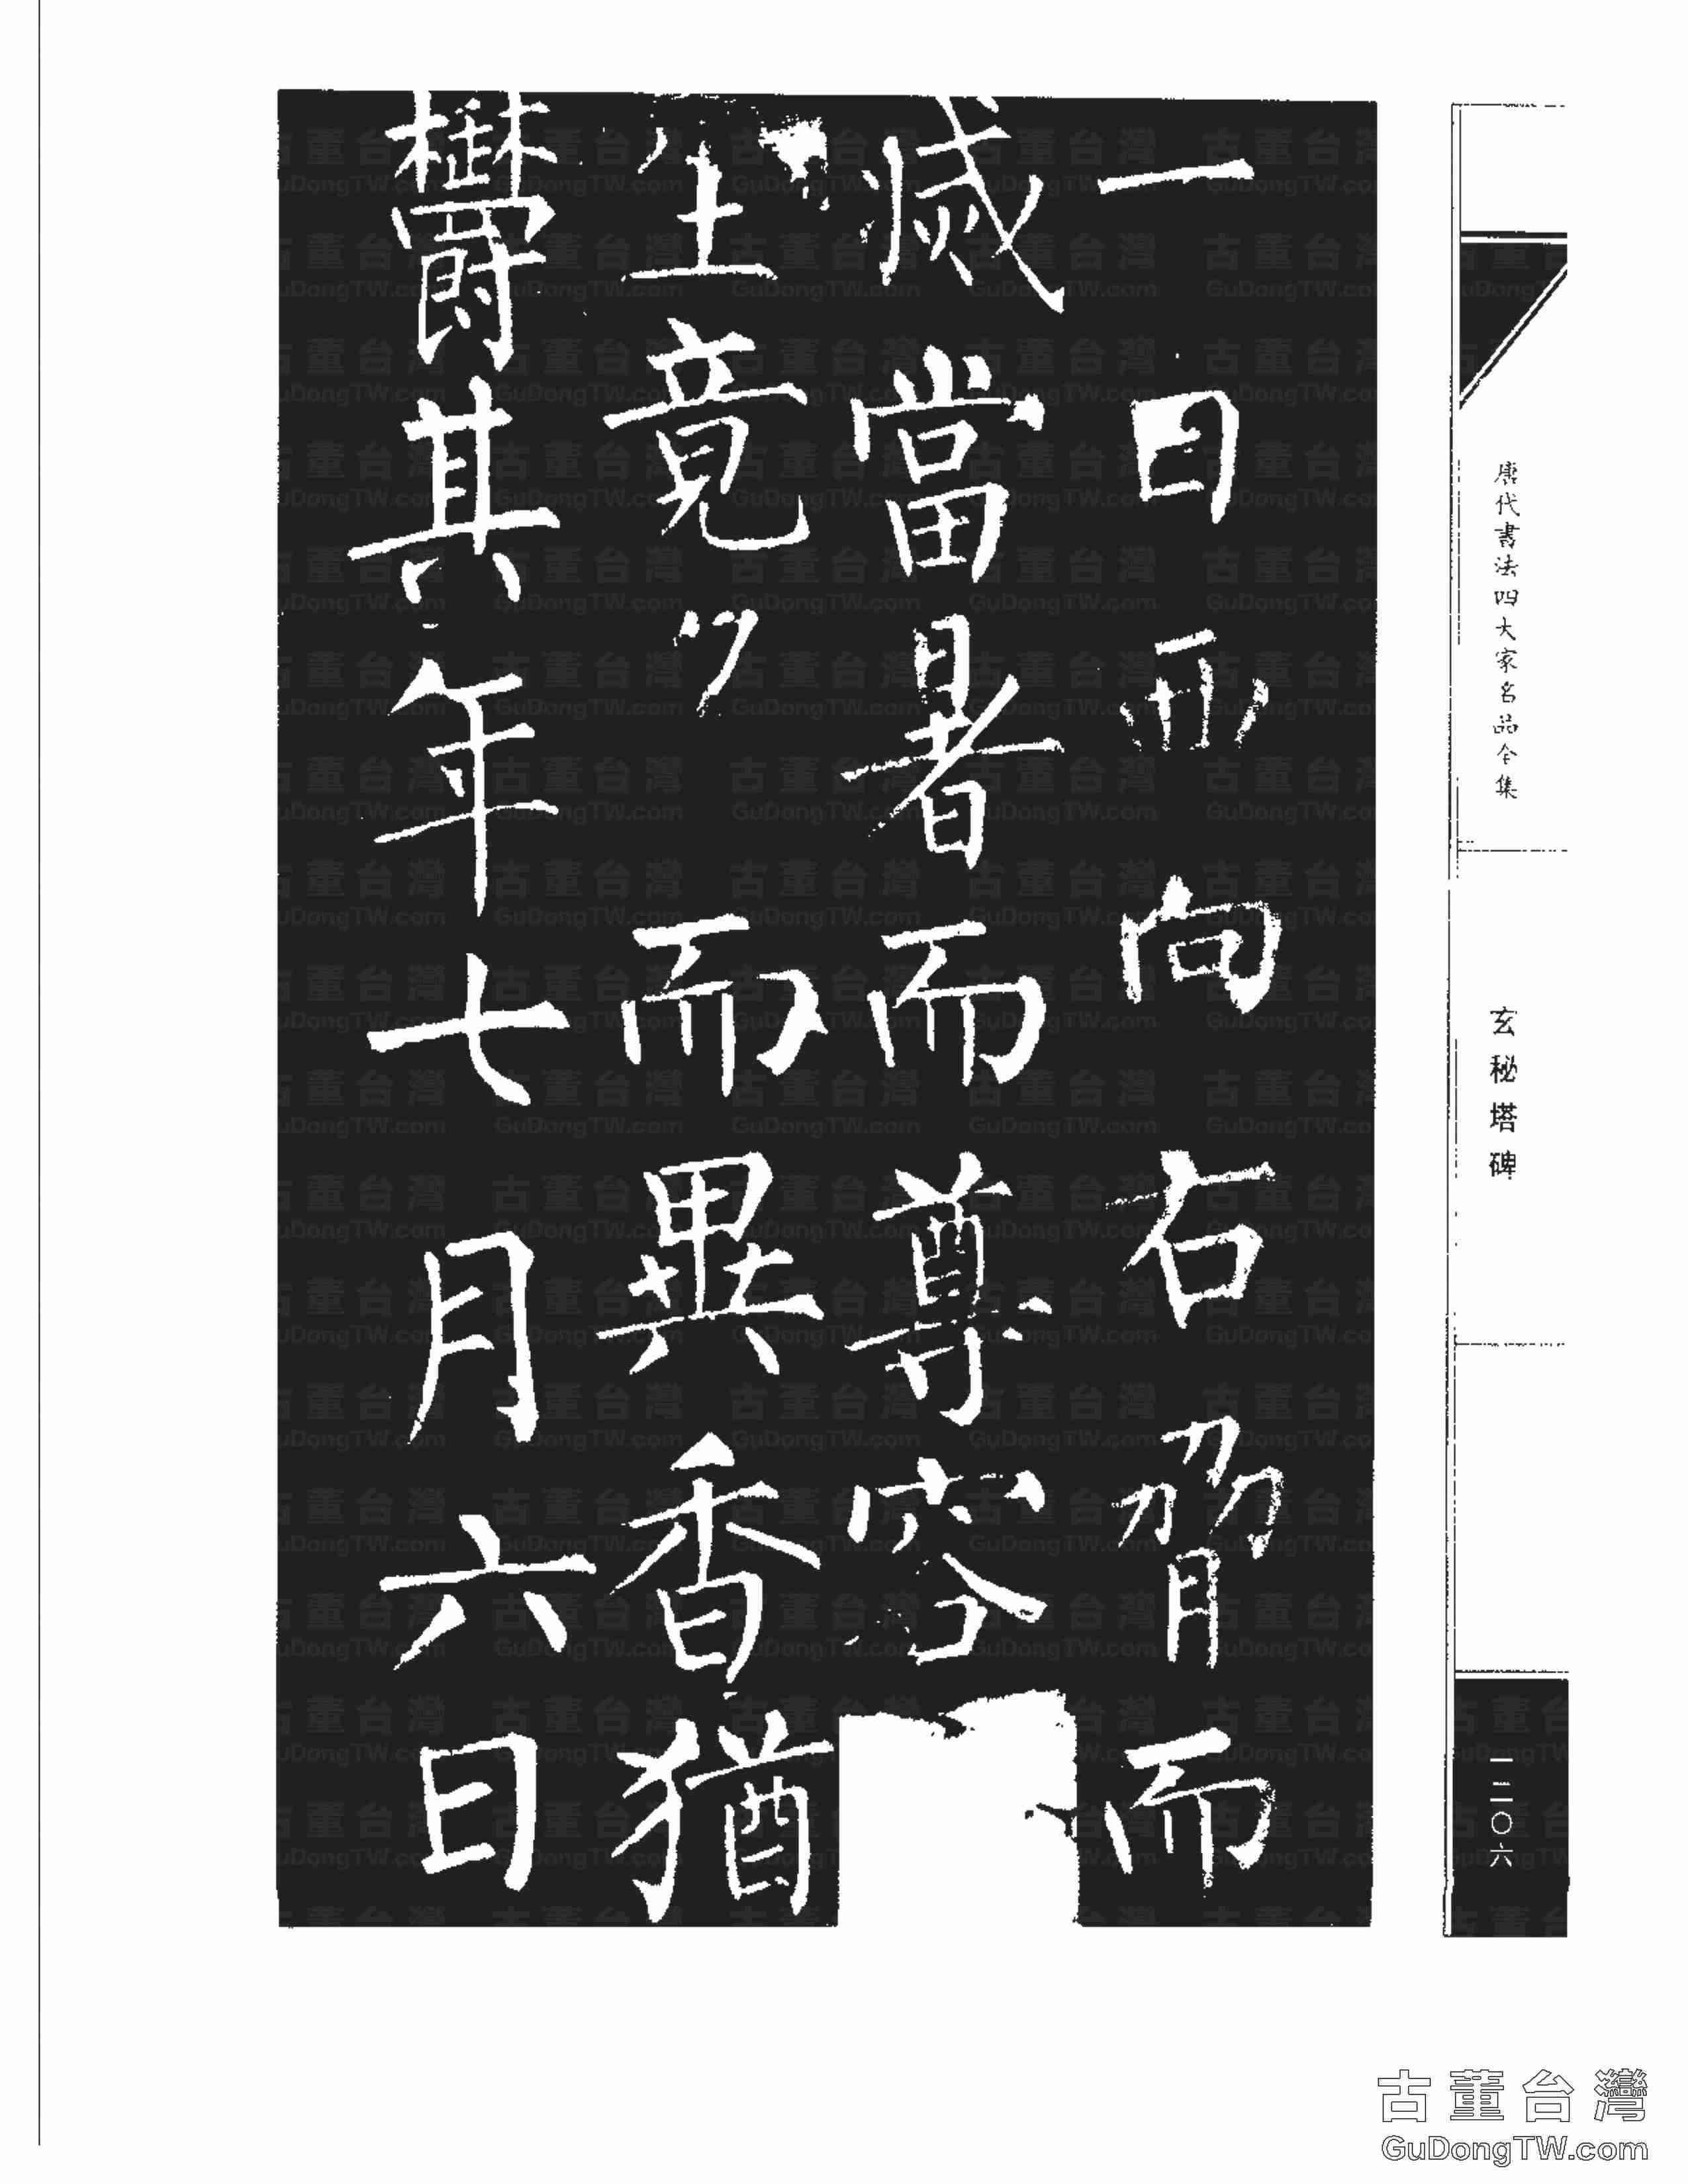 唐代書法四大家名品全集
玄秘塔碑
一二〇六
一日西向右脅而
滅當暑而尊容
生竟夕而異香猶
鬱其年七月六日
古董台灣
GuDongTW.com